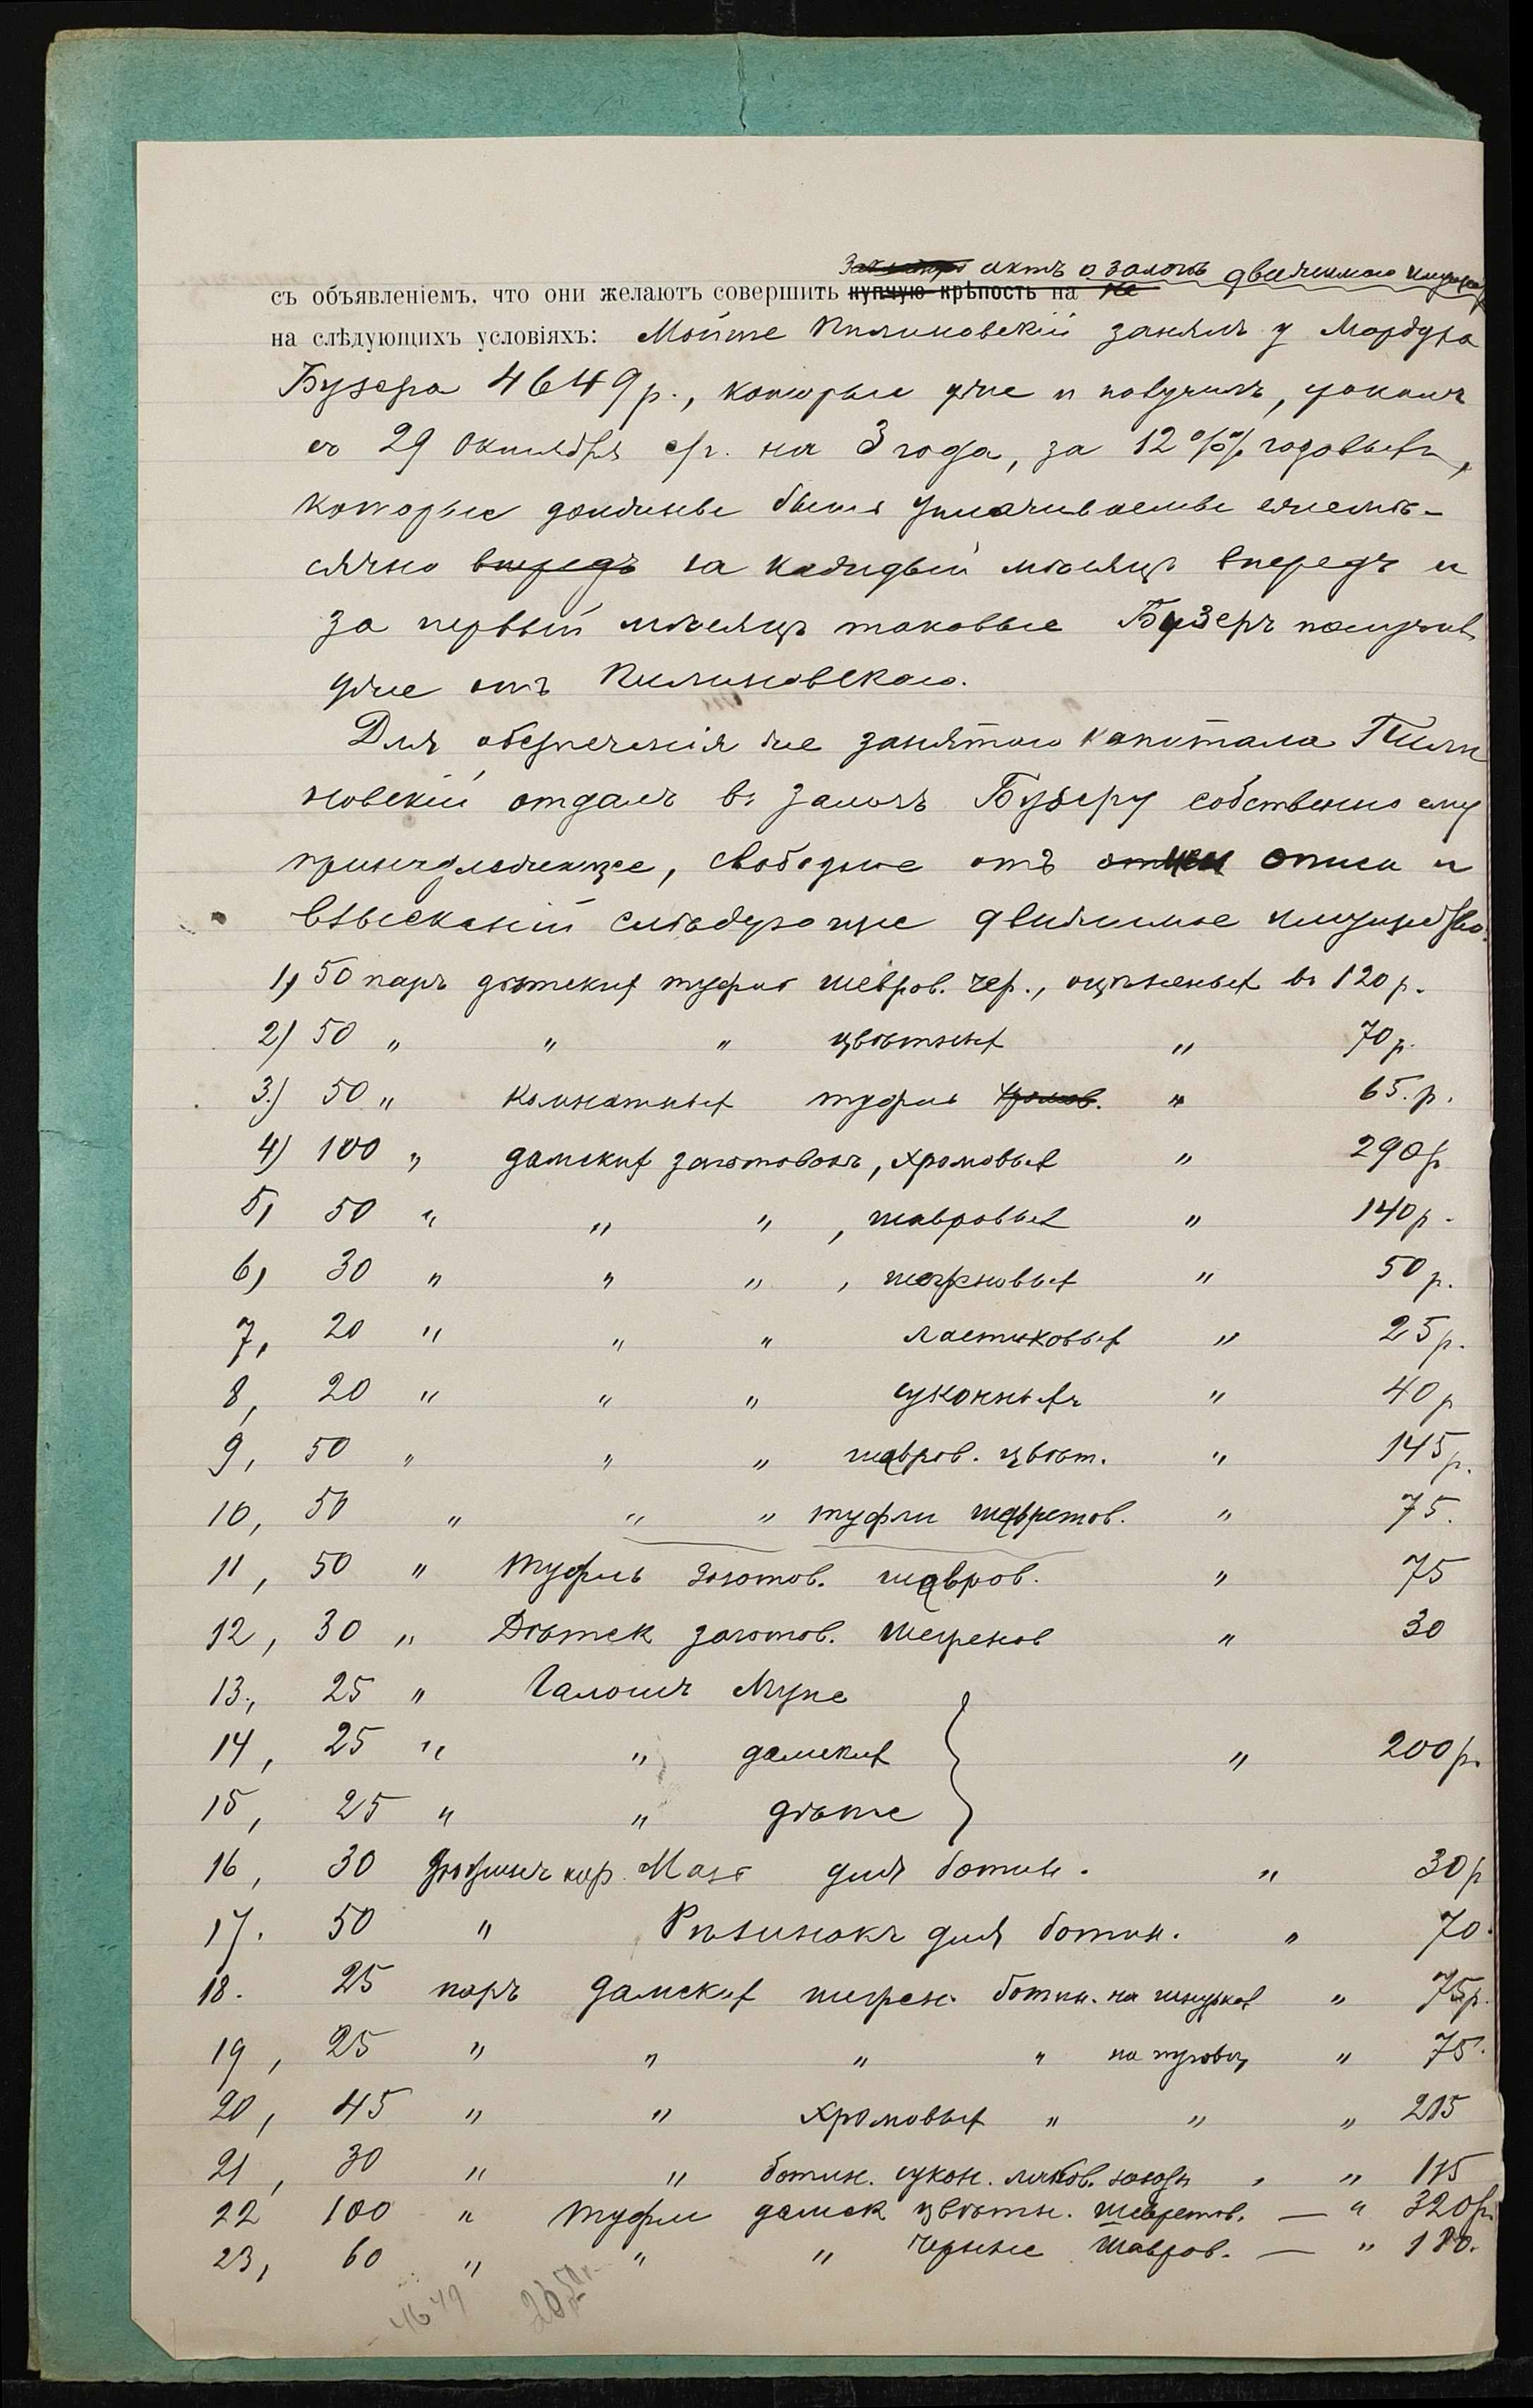 актъ о залогѣ движимаго имущества
съ объявленіемъ, что они желаютъ совершить купчую крѣпость на
на слѣдующихъ условіяхъ: Мойше Пилиновскій занялъ у Мордуха
Бузера 4649 р., которые уже и получилъ, срокомъ
съ 29 Октября с/г. на 3 года, за 12%% годовыхъ,
которые должны быть уплачиваемы ежемѣ-
сячно впередъ за каждый мѣсяцъ впередъ и
за первый мѣсяцъ таковые Бузеръ получилъ
уже отъ Пилиновскаго.
Для обезпеченія же занятаго капитала Пили
новскій отдалъ въ залогъ Бузеру собственно ему
принадлежащее, свободное отъ описи и
взысканій слѣдующее движимое имущество:
1) 50 паръ дѣтских туфель шевров. чер., оцѣненных въ 120 р.
2) 50 " " " цвѣтных " 70 р.
3) 50 " комнатных туфель хромов. " 65. р.
4) 100 " дамских заготовокъ, хромовых " 290 р
5, 50 " " " , шевровых " 140 р.
6, 30 " " " , шагреновых " 50 р.
7, 20 " " " ластиковых " 25 р.
8, 20 " " " суконныхъ " 40 р
9, 50 " " " шевров. цвѣт. " 145 р.
10, 50 " " " туфли шевретов. " 75.
11, 50 " Туфель заготов. шевров. " 75
12, 30 " Дѣтск заготов. шагренов " 30
13, 25 " Галошъ Мужс
14, 25 " " дамских " 200 р.
15, 25 " " дѣтс
16, 30 дюжинъ кор. Мазь для ботин. " 30 р
17. 50 " Рѣзинокъ для ботин. " 70.
18. 25 паръ дамских шагрен. ботин. на шнурках " 75 р.
19, 25 " " " " на пуговиц " 75.
20, 45 " " хромовых " " " 215
21, 30 " " ботин. сукон. " " 115
22 100 " туфли дамск цвѣтн. шевретов. — " 320 р.
23, 60 " " " Черные Шевров. — " 180.
4649